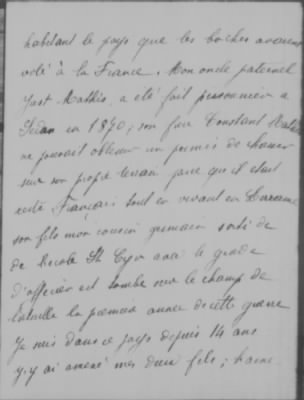 habitant le pays que les boches avaient
volé à la France. Mon oncle paternel
Just Mathis, a été fait prisonnier a
Sedan en 1870; son frere Constant Mathis
ne pouvait obtenir un permis de chasser
sur son propre terrain parce qu'il etait
resté Français tout en vivant en Lorraine
son fils mon cousin germain sorti de
de l'ecole St Cyr avec le grade
d'officier est tombé sur le champ de
bataille la premiere annee de cette guerre
Je suis dans ce pays depuis 14 ans
j'y ai amené mes deux fils;